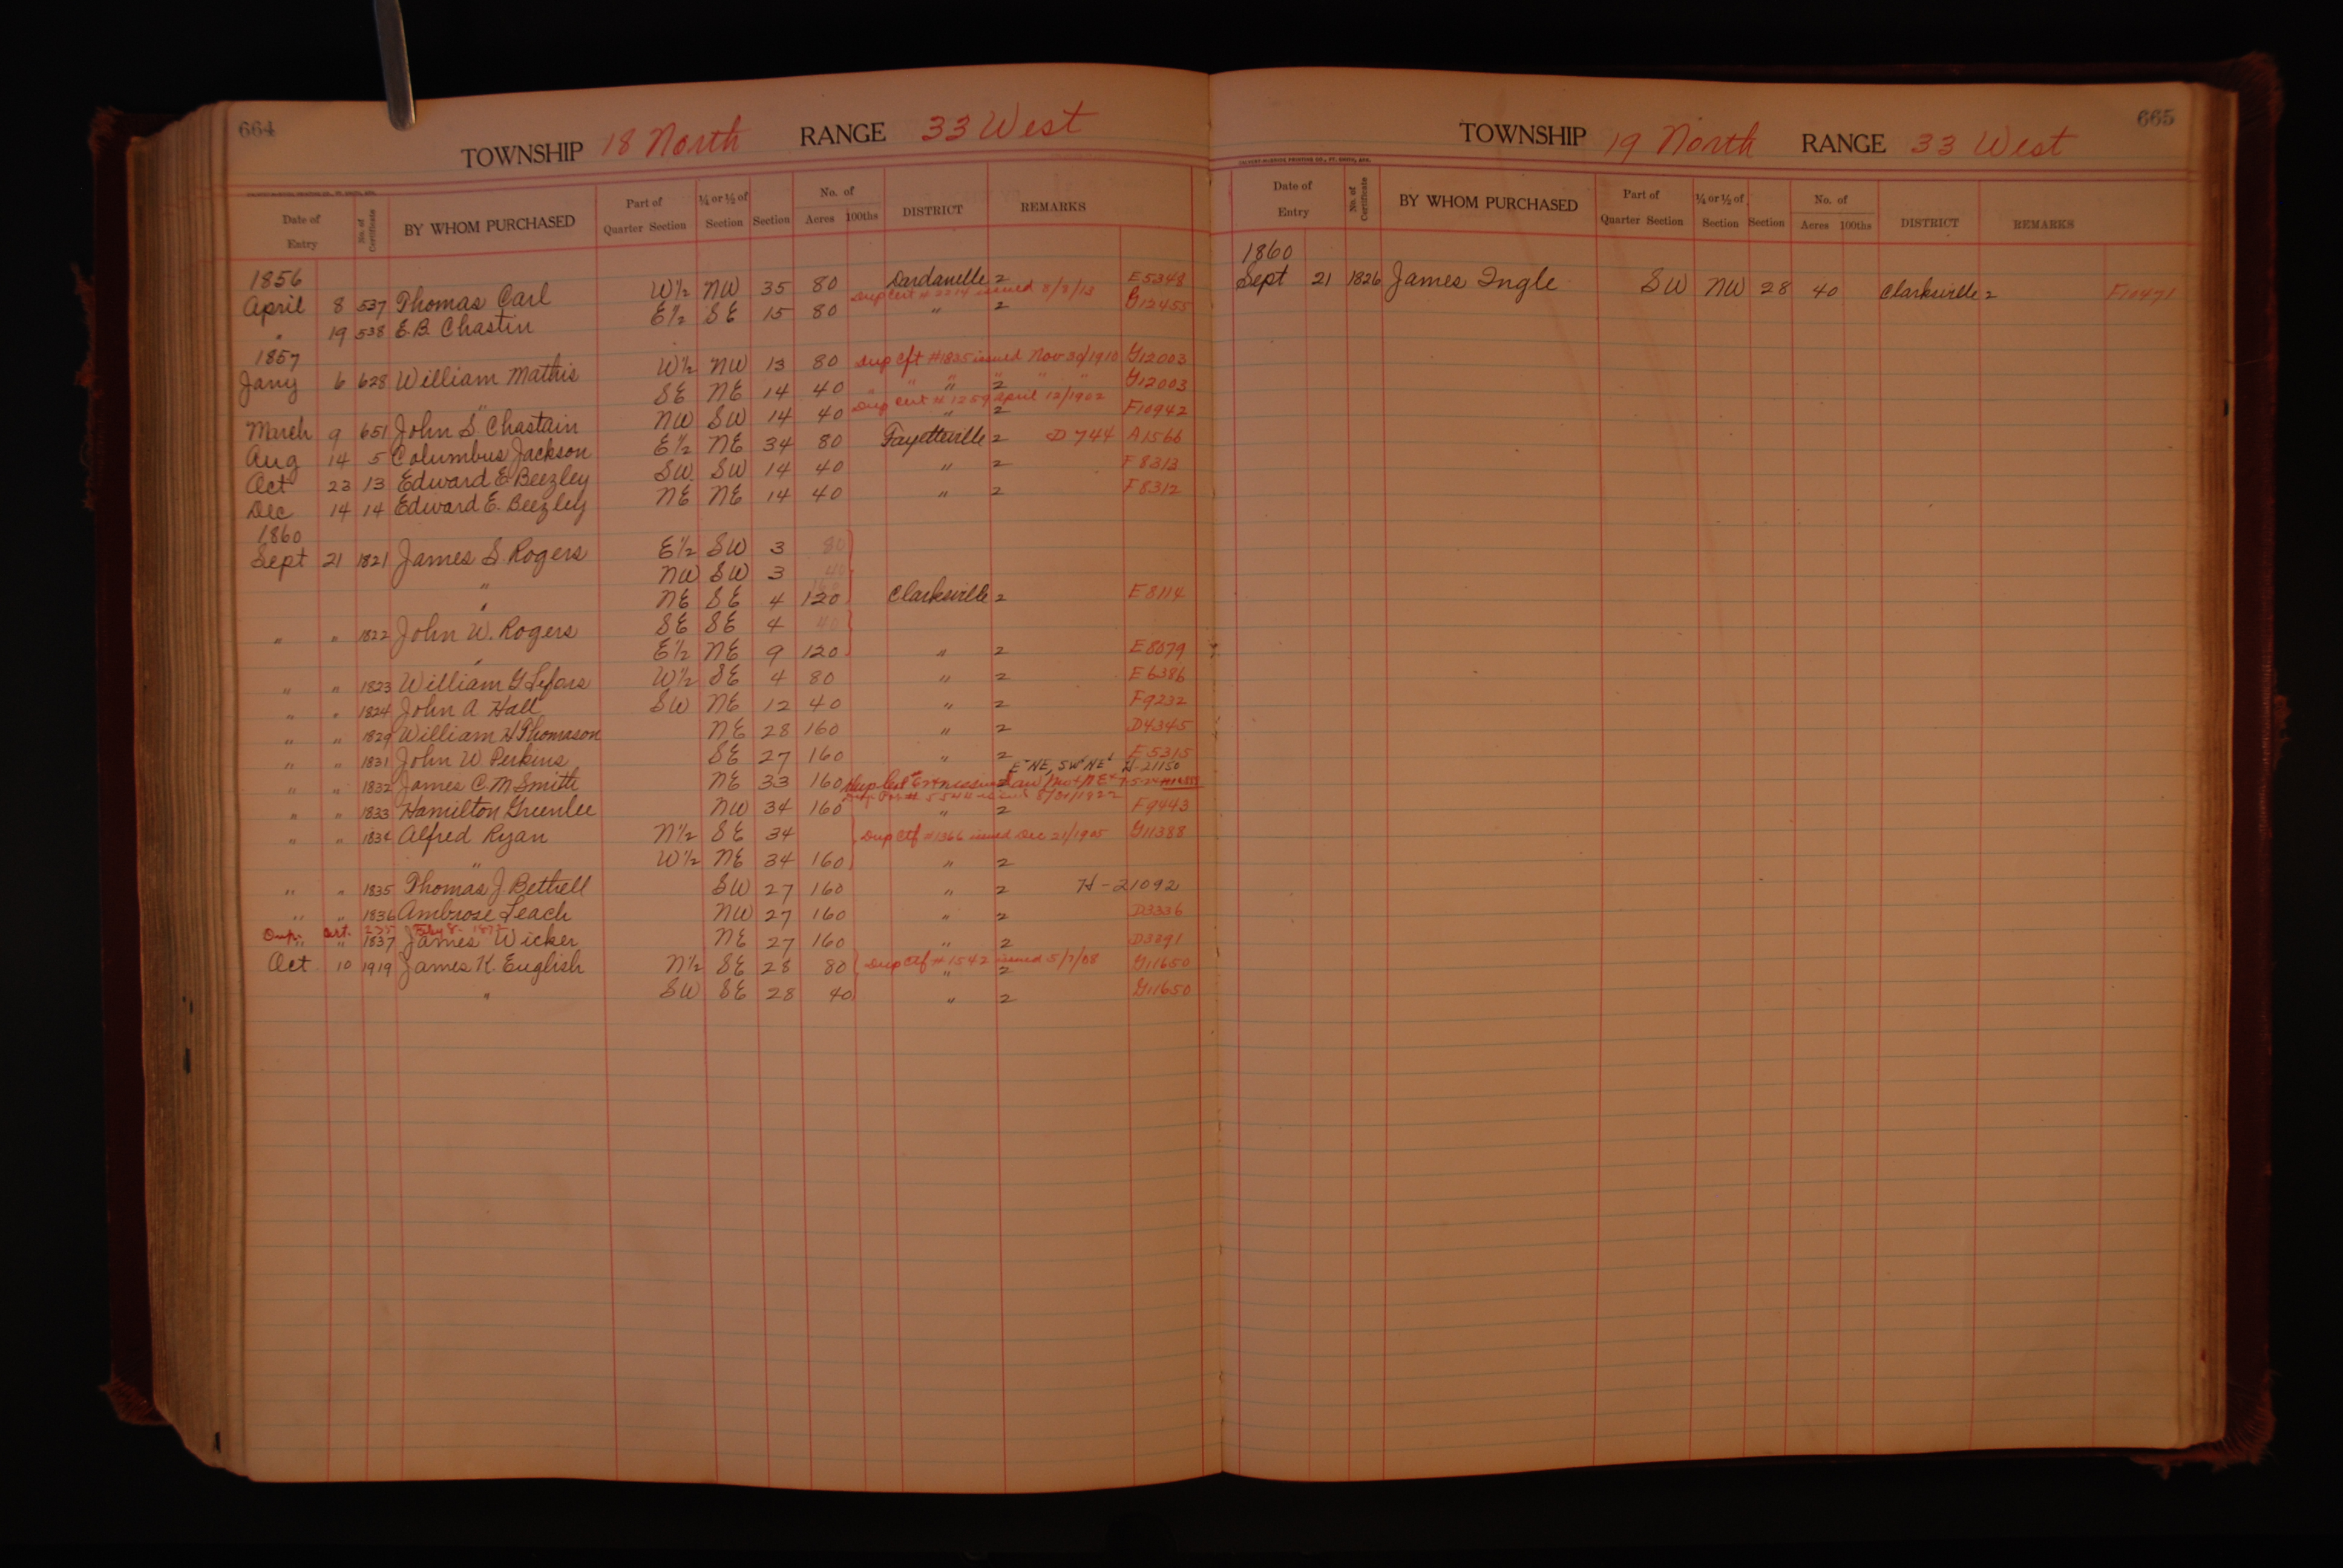 664
TOWNSHIP 18 North RANGE 33 West
Date of Entry No. of Certificate BY WHOM PURCHASED Part of Quarter Section ¼ or ½ of Section Section No. of Acres 100ths DISTRICT REMARKS
1856
April 8 537 Thomas Carl W½ NW 35 80 Dardanelle 2 E5348
Dup Cert # 2214 issued 8/2/13
" 19 538 E.B. Chastin E½ SE 15 80 " 2 G12455
1857
Jany 6 628 William Mathis W½ NW 13 80 Dup Cft #1835 issued Nov 30/1910 G12003
" SE NE 14 40 " " " 2 " " G12003
Dup Cert # 1259 April 12/1902
March 9 651 John S. Chastain NW SW 14 40 " 2 F10942
Aug 14 5 Columbus Jackson E½ NE 34 80 Fayetteville 2 D 744 A1566
Oct 23 13 Edward E. Beezley SW SW 14 40 " 2 F8313
Dec 14 14 Edward E. Beezley NE NE 14 40 " 2 F8312
1860
Sept 21 1821 James S. Rogers E½ SW 3 80
" NW SW 3 40
" NE SE 4 120 Clarksville 2 E8114
" " 1822 John W. Rogers SE SE 4 40
" E½ NE 9 120 " 2 E8079
" " 1823 William G Lefors W½ SE 4 80 " 2 E6386
" " 1824 John A Hall SW NE 12 40 " 2 F9232
" " 1829 William H Thomason NE 28 160 " 2 D4345
" " 1831 John W. Perkins SE 27 160 " 2 E5315
E NE, SW NE H-21150
" " 1832 James C. M Smith NE 33 160 Dup Cert
8/30/1922
" " 1833 Hamilton Greenlee NW 34 160 " 2 F9443
" " 1834 Alfred Ryan N½ SE 34 Dup Ctf #1366 issued Dec 21/1905 G11388
" W½ NE 34 160 " 2
" " 1835 Thomas J Bethell SW 27 160 " 2 H-21092
" " 1836 Ambrose Leach NW 27 160 " 2 D3336
Dup. Cert. Feby 8
" " 1837 James Wicker NE 27 160 " 2 D3891
Oct 10 1919 James K. English N½ SE 28 80 Dup Ctf #1542 issued 5/7/08 " 2 G11650
" SW SE 28 40 " 2 G11650
665
TOWNSHIP 19 North RANGE 33 West
Date of Entry No. of Certificate BY WHOM PURCHASED Part of Quarter Section ¼ or ½ of Section Section No. of Acres 100ths DISTRICT REMARKS
1860
Sept 21 1826 James Ingle SW NW 28 40 Clarksville 2 F10471